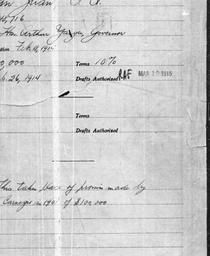 San Juan P. R.
46,716
Hon Arthur Yager, Governor
Feb 10, 1914
0,000 Terms 10%
Drafts Authorized AAF MAR 10 1915
6. 26, 1914
Terms
Drafts Authorized
This takes place of promise made by
Carnegie in 1901 of $100 000